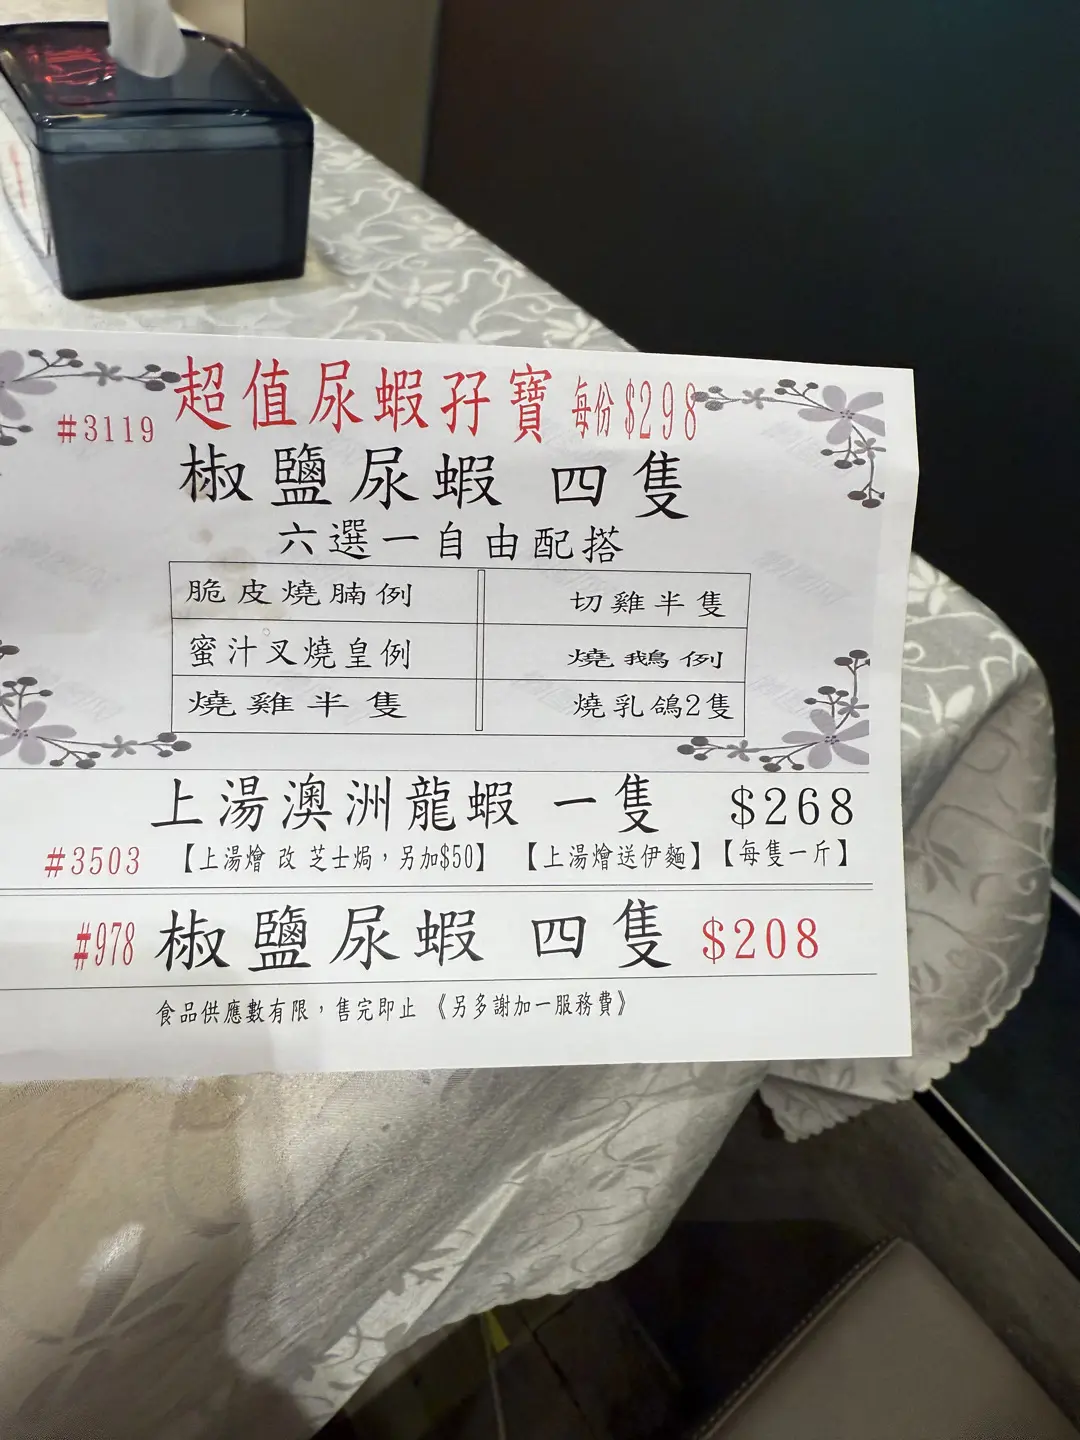 #3119 超值尿蝦孖寶 每份$298
椒鹽尿蝦 四隻
六選一自由配搭
脆皮燒腩例 切雞半隻
蜜汁叉燒皇例 燒鵝例
燒雞半隻 燒乳鴿2隻
上湯澳洲龍蝦 一隻 $268
#3503 【上湯燴 改 芝士焗，另加$50】 【上湯燴送伊麵】【每隻一斤】
#978 椒鹽尿蝦 四隻 $208
食品供應數有限，售完即止 《另多謝加一服務費》